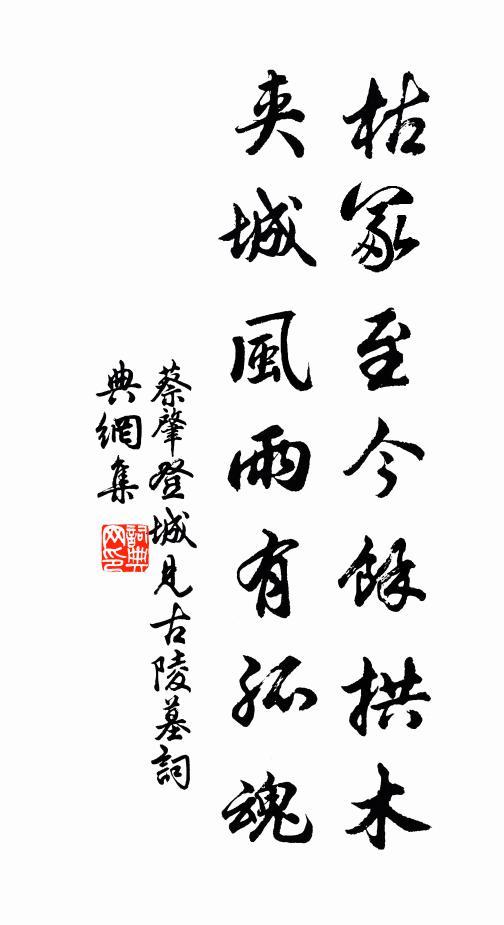 枯冢至今餘拱木
夾城風雨有孤魂
蔡肇登城見古陵墓詞
典網集
詞典網印